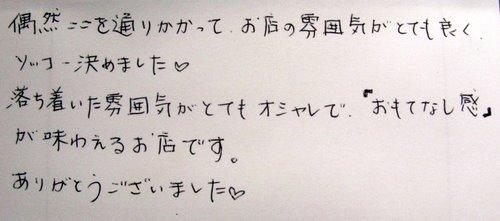 偶然ここを通りかかって、お店の雰囲気がとても良く、
ソッコー決めました♡
落ち着いた雰囲気がとてもオシャレで、『おもてなし感』
が味わえるお店です。
ありがとうございました♡